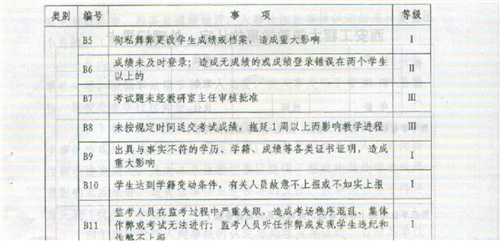 类别 编号 事 项 等级
B5 徇私舞弊更改学生成绩或档案，造成重大影响 Ⅰ
B6 成绩未及时登录；造成无成绩的或成绩登录错误在两个学生
以上的 Ⅱ
B7 考试题未经教研室主任审核批准 Ⅲ
B8 未按规定时间送交考试成绩，拖延1周以上而影响教学进程 Ⅲ
B9 出具与事实不符的学历、学籍、成绩等各类证书证明，造成
重大影响 Ⅰ
B10 学生达到学籍变动条件，有关人员故意不上报或不如实上报 Ⅰ
B11 监考人员在监考过程中严重失职，造成考场秩序混乱、集体
作弊或考试无法进行；监考人员听任作弊或发现学生违纪和 Ⅰ
作弊不上报